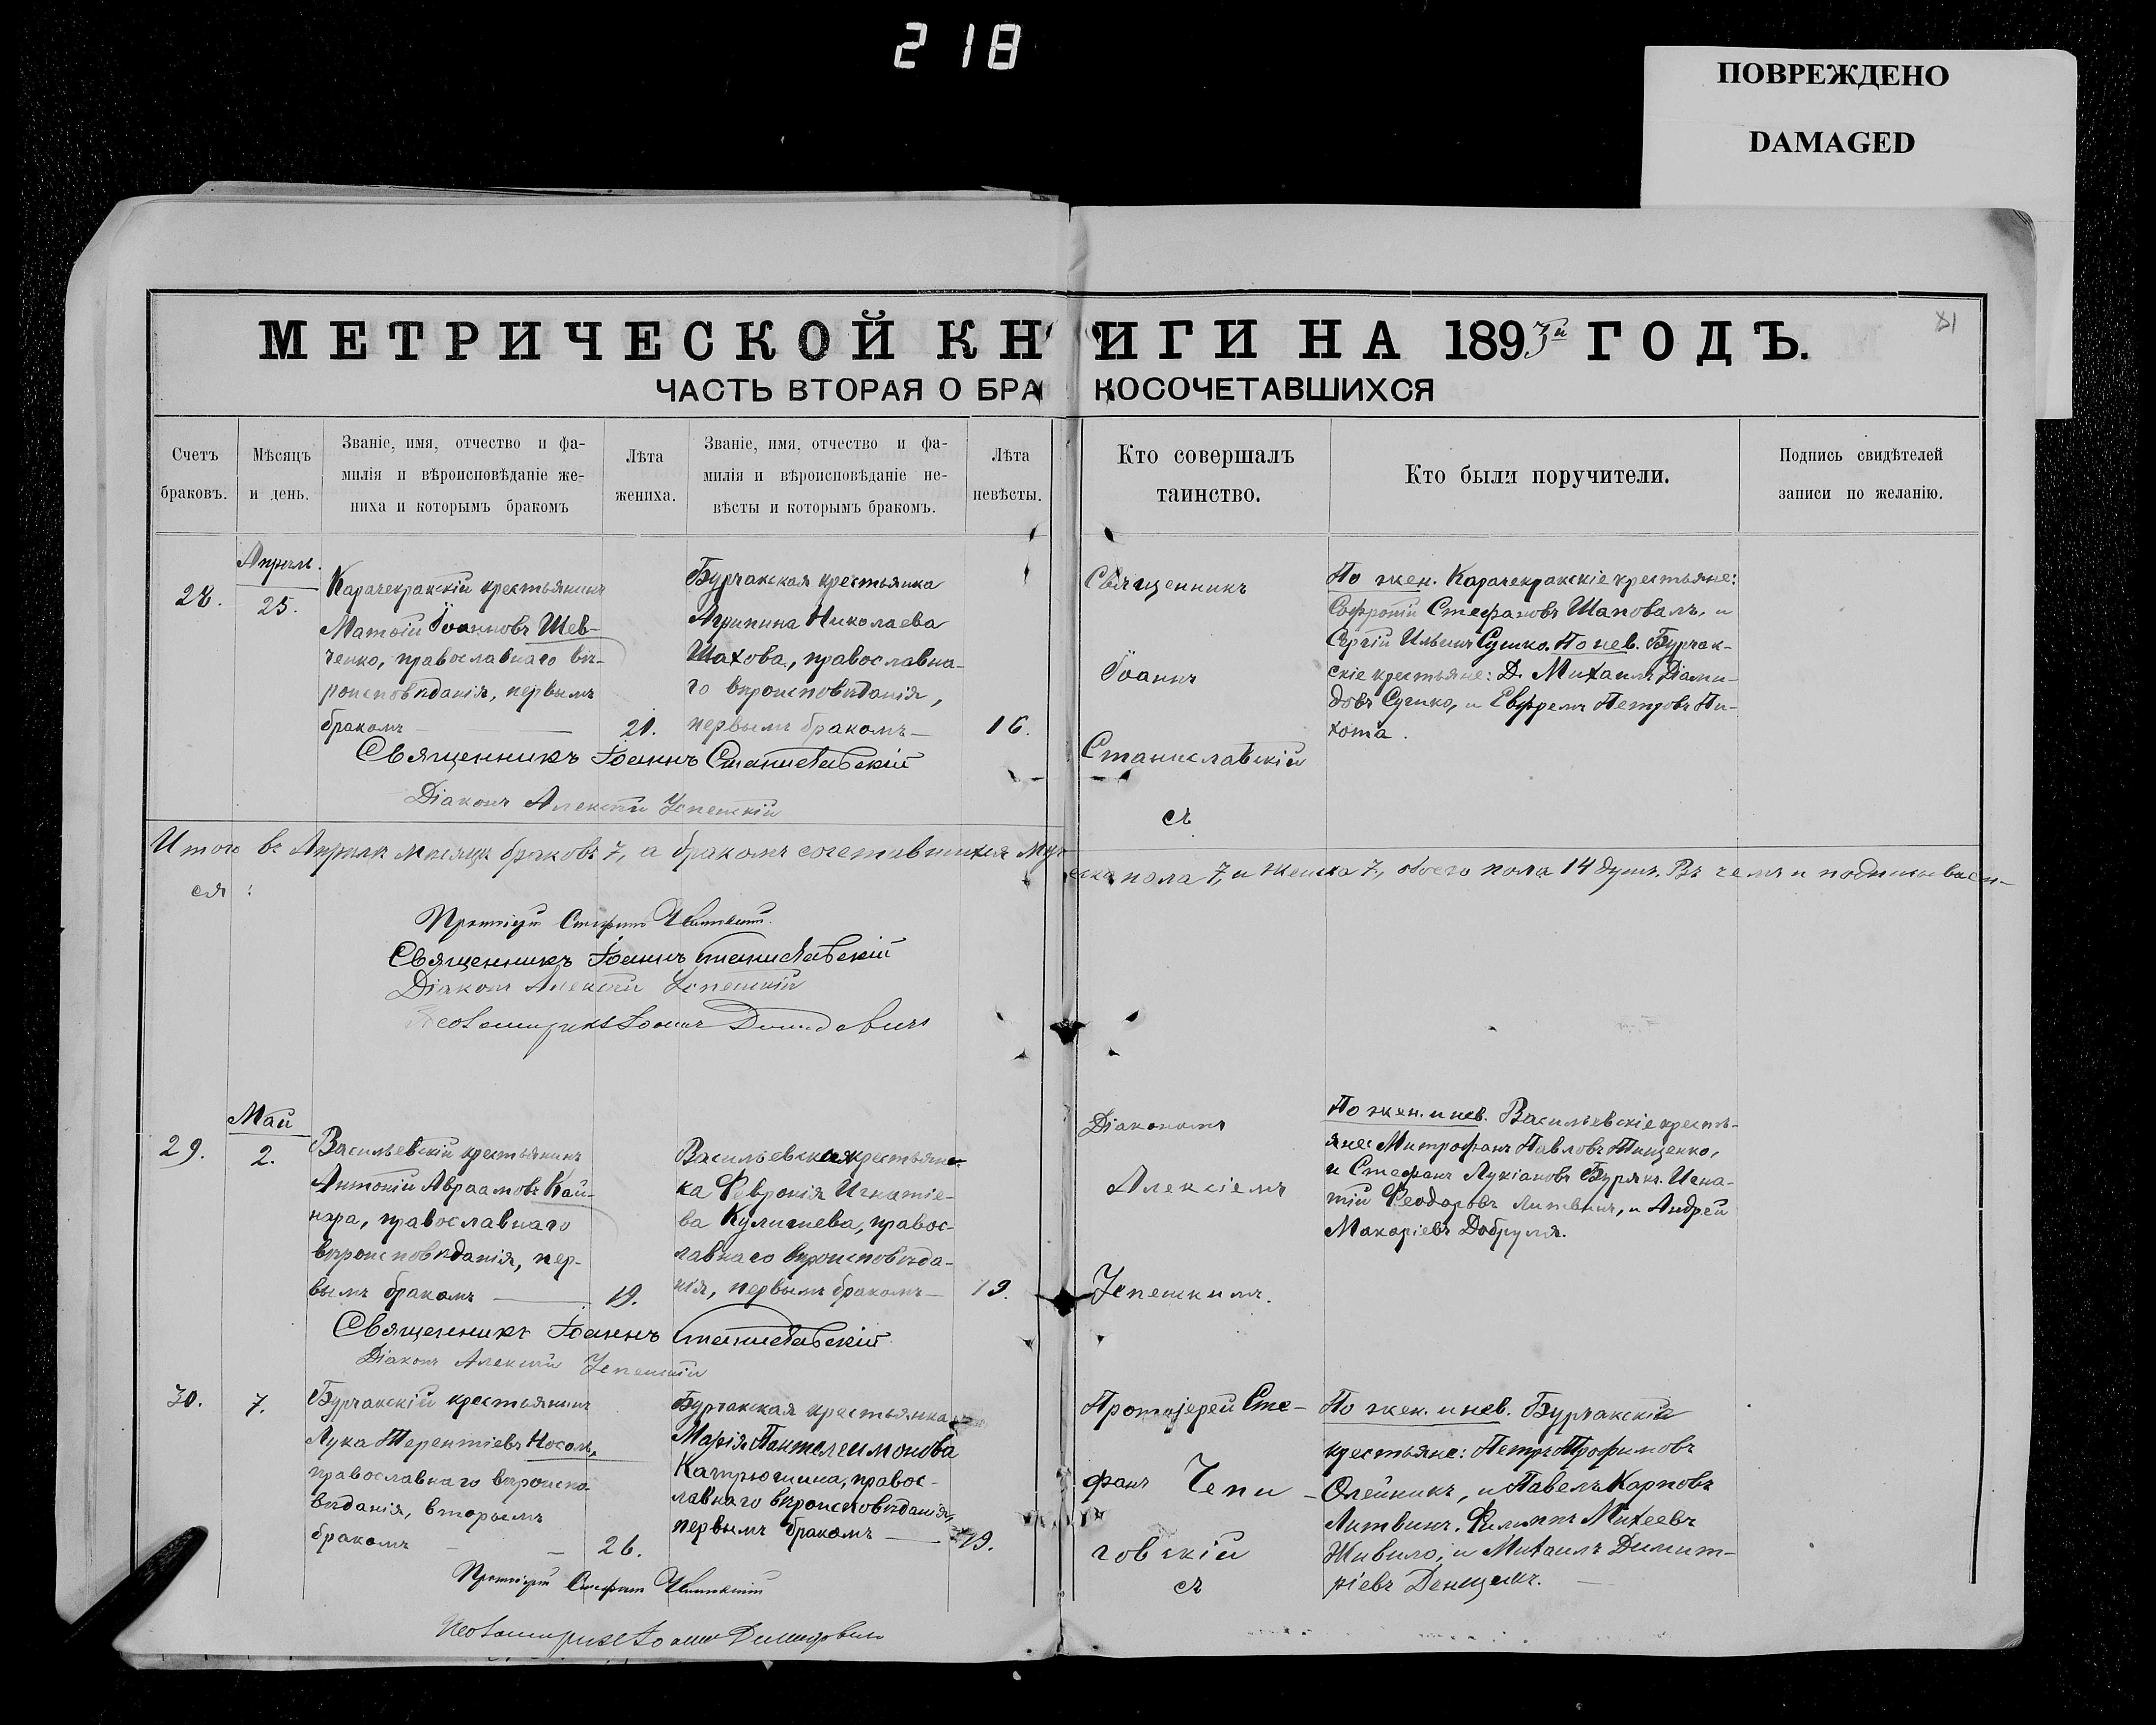 218
ПОВРЕЖДЕНО
DAMAGED
МЕТРИЧЕСКОЙ КНИГИ НА 1893й ГОДЪ.
ЧАСТЬ ВТОРАЯ О БРАКОСОЧЕТАВШИХСЯ
Счетъ
браковъ.
Мѣсяцъ
и день.
Званіе, имя, отчество и фа-
милія и вѣроисповѣданіе же-
ниха и которымъ бракомъ
Лѣта
жениха.
Званіе, имя, отчество и фа-
милія и вѣроисповѣданіе не-
вѣсты и которымъ бракомъ.
Лѣта
невѣсты.
Кто совершалъ
таинство.
Кто были поручители.
Подпись свидѣтелей
записи по желанію.
28.
Апрѣль.
25.
Карачекракскій крестьянинъ
Матѳій Іоанновъ Шев-
ченко, православнаго вѣ-
роисповѣданія, первымъ
бракомъ
21.
Бурчакская крестьянка
Агрипина Николаева
Шахова, православна-
го вѣроисповѣданія,
первымъ бракомъ—
16.
Священникъ
Іоаннъ
Станиславскій
съ
По жен. Карачекракскіе крестьяне:
Софроній Стефановъ Шаповалъ, и
Сергій Ильинъ Сушко. По нев. Бурчак-
скіе крестьяне: Д. Михаилъ Діами-
довъ Сушко, и Евфремъ Петровъ Пи-
хота.
Священникъ Іоаннъ Станиславскій
Діаконъ Алексій Успешкій
Итого въ Апрѣлѣ мѣсяцѣ браковъ 7, а бракомъ сочетавшихся муж
еска пола 7, и женска 7, обоего пола 14 душъ. Въ чемъ и подписываем-
ся:
Протоіерей Стефанъ
Священникъ Іоаннъ Станиславскій
Діаконъ Алексій Успешкій
Псаломщикъ Іоаннъ
29.
Май
2.
Васильевскій крестьянинъ
Антоній Авраамовъ Кай-
нара, православнаго
вѣроисповѣданія, пер-
вымъ бракомъ —
19.
Васильевская крестьян-
ка Февронія Игнатіе-
ва Кулишева, правос-
лавнаго вѣроисповѣда-
нія, первымъ бракомъ—
19.
Діакономъ
Алексіемъ
Успешкимъ.
По жен. и нев. Васильевскіе кресть-
яне: Митрофанъ Павловъ Тищенко,
и Стефанъ Лукіановъ Бурякъ. Игна-
тій Феодоровъ Литвинъ, и Андрей
Макаріевъ Добруля.
Священникъ Іоаннъ Станиславскій
Діаконъ Алексій Успешкій
30.
7.
Бурчакскій крестьянинъ
Лука Терентіевъ Носаль,
православнаго вѣроиспо-
вѣданія, вторымъ
бракомъ
26.
Бурчакская крестьянка
Марія Пантелеимонова
Катрюшина, правос-
лавнаго вѣроисповѣданія,
первымъ бракомъ —
19.
Протоіерей Сте-
фанъ Чепи-
говскій
съ
По жен. и нев. Бурчакскіе
крестьяне: Петръ Трофимовъ
Олейникъ, и Павелъ Карповъ
Литвинъ. Филиппъ Михеевъ
Живило, и Михаилъ Димит-
ріевъ Денщикъ.
Протоіерей Стефанъ
Псаломщикъ Іоаннъ